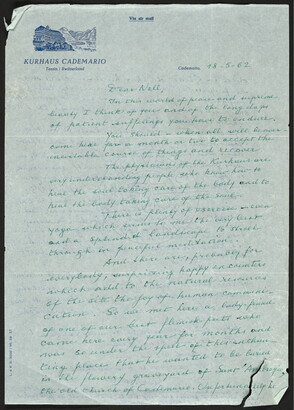 Via air mail
KURHAUS CADEMARIO
Tessin / Switzerland
Cademario, 18-5-62
Dear Nell,
In our world of peace and supreme
beauty I think of you and of the long days
of patient sufferings you have to endure.
You should - when all will be over
come here for a month or two to accept the
inevitable course of things and recover.
The physicians of the Kurhaus are
very understanding people who know how to
heal the soul taking care of the body and to
heal the body taking care of the soul.
There is plenty of exercise
yoga which seems to be the very best
and a splendid landscape to
through in peaceful meditation.
And there are, probably for
everybody, surprising happy encounters
which add to the natural resources
of the site the joy of human communi-
cation. So we met here a lady-friend
of one of our best flemish poets who
came here every year for months and
was so under the spell of this
place that he wanted to be buried
in the flowery graveyard of Sant' Ambrogio
the old church of Cademario. Unfortunately he